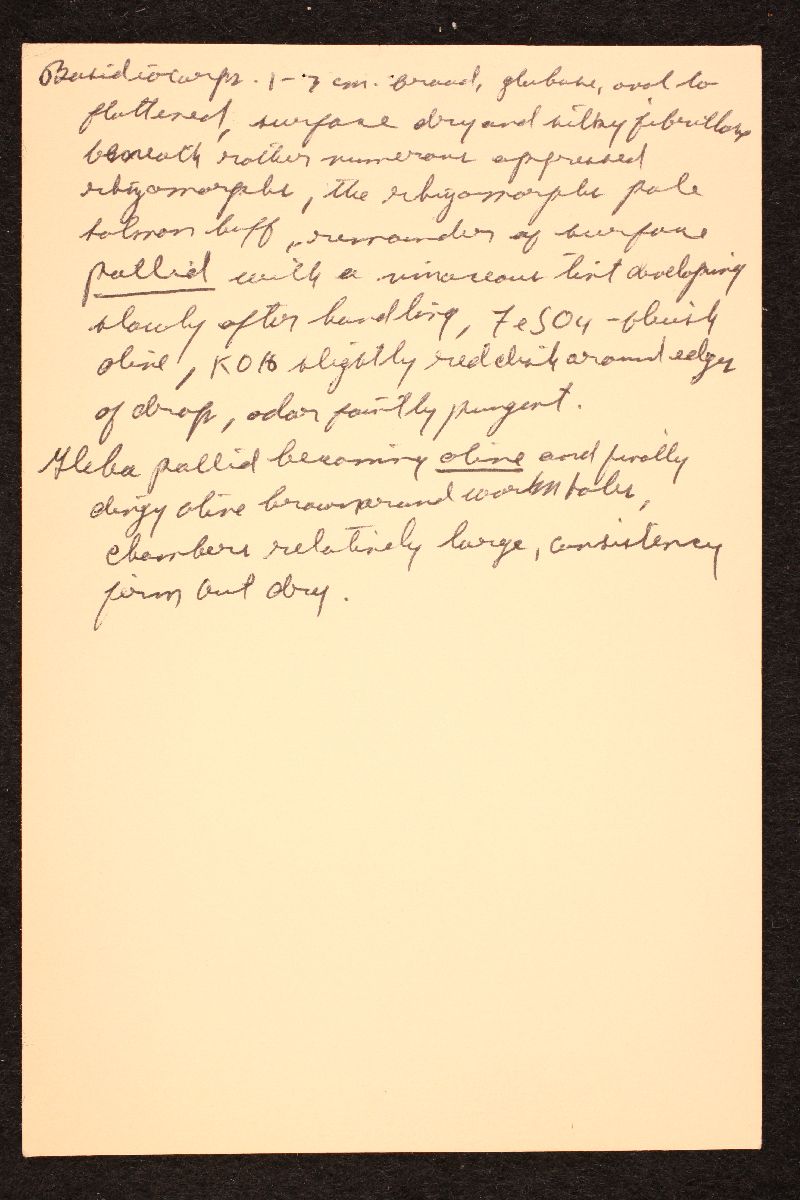 Basidiocarps. 1-7 cm. broad, globose, oval to
flattened, surface dry and silky fibrillose
beneath rather numerous appressed
rhizomorphs, the rhizomorphs pale
salmon buff, remainder of surface
pallid with a vinaceous tint developing
slowly after handling, FeSO4 - bluish
olive, KOH slightly reddish around edges
of drop, odor faintly pungent.
Gleba pallid becoming olive and finally
dingy olive brown around worm holes,
chambers relatively large, consistency
firm but dry.